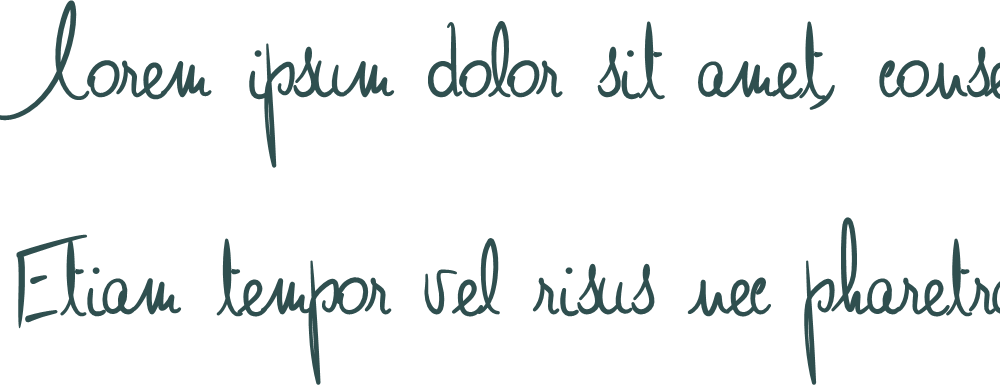 Lorem ipsum dolor sit amet, conse
Etiam tempor vel risus nec pharetra